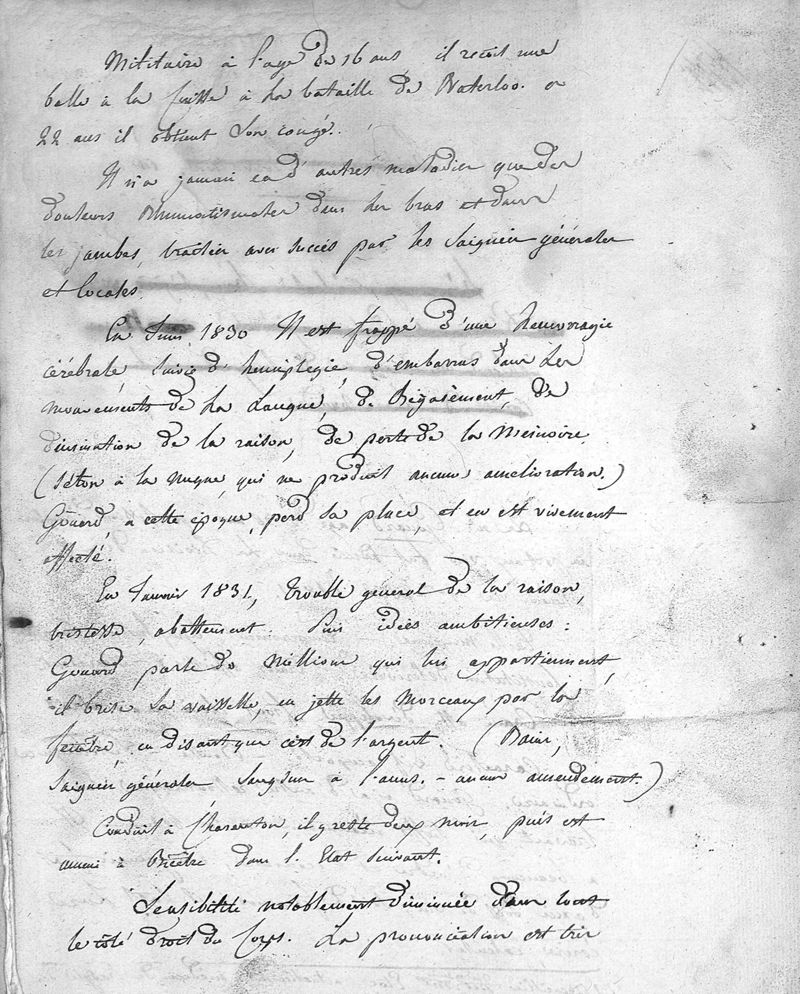 Militaire à l'age de 16 ans, il reçoit une
balle à la Cuisse à la bataille de Waterloo. a
22 ans il obtient son congé.
Il n'a jamais eu d'autres maladies que des
douleurs Rhumatismales dans les bras et dans
les jambes, traitées avec succès par les Saignées générales
et locales.
En Juin 1830 Il est frappé d'une hemorragie
cérébrale, suivie d'hemiplegie, d'embarras dans les
mouvements de la Langue, de Bégaiement, de
diminution de la raison, de perte de la Memoire
(Séton à la nuque, qui ne produit aucune amelioration.)
Gouard, a cette époque, perd sa place, et en est vivement
affecté.
En Janvier 1831, trouble général de la raison,
tristesse, abattement. Puis idées ambitieuses:
Gouard parle de Millions qui lui appartiennent,
il brise la vaisselle, en jette les Morceaux par la
fenêtre, en disant que c'est de l'argent. (Bains,
Saignées générales Sangsues à l'anus. - aucun amendement.)
Conduit à Charenton, il y reste deux mois, puis est
amené à Bicêtre dans l'Etat suivant.
Sensibilité notablement diminuée dans tout
le côté droit du Corps. La prononciation est très